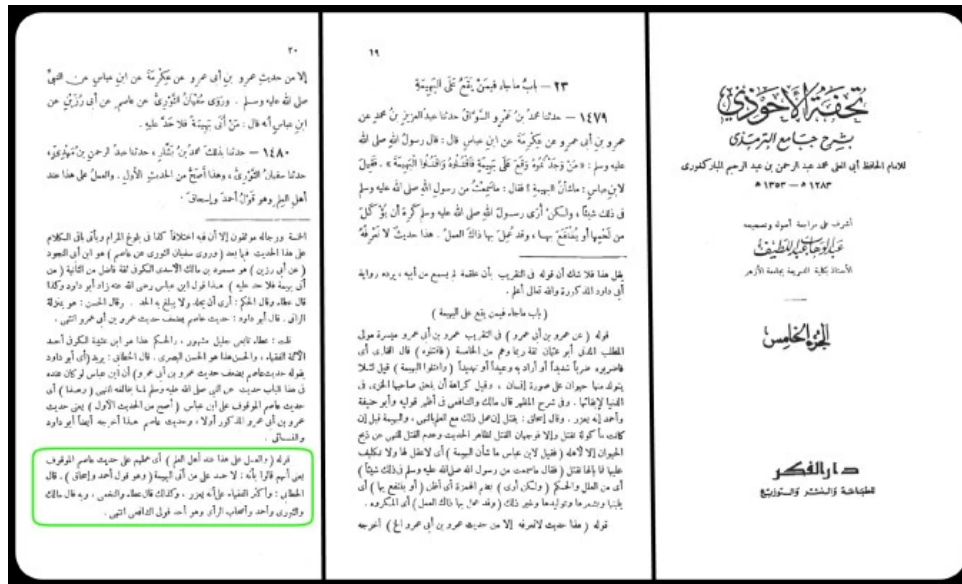 تحفة الأحوذي
بشرح جامع الترمذي
للامام الحافظ أبي العلى محمد عبد الرحمن بن عبد الرحيم المباركفورى
١٢٨٣ ه — ١٣٥٣ ه
أشرف على مراجعة أصوله وتصحيحه
عبد الوهاب عبد اللطيف
الأستاذ بكلية الشريعة بجامعة الأزهر
الجزء الخامس
دار الفكر
للطباعة والنشر والتوزيع
١٩
٢٣ — بابُ ماجاء فيمَنْ يَقَعُ عَلَى البَهِيمَةِ
١٤٧٩ — حدثنا محمدُ بنُ عَمْرٍو السَّوَّاقُ حدثنا عبدُ العزيزِ بنُ محمدٍ عن
عمرِو بنِ أبى عمرٍو عن عِكْرِمَةَ عن ابنِ عباسٍ قال : قال رسولُ اللهِ صلى الله
عليه وسلم : «مَنْ وَجَدْتُمُوهُ وَقَعَ عَلَى بَهِيمَةٍ فَاقْتُلُوهُ وَاقْتُلُوا الْبَهِيمَةَ» . فَقِيلَ
لابنِ عباسٍ : ماشأنُ البهيمةِ ؟ فقال : ماسَمِعْتُ من رسولِ اللهِ صلى الله عليه وسلم
فى ذلك شيئاً ، ولكنْ أُرَى رسولَ اللهِ صلى الله عليه وسلم كَرِهَ أن يُؤْكَلَ
من لَحْمِها أو يُنْتَفَعَ بهـا ، وقد عُمِلَ بها ذاكَ العملُ . هذا حديثٌ لا نَعْرِفُهُ
يقل هذا فلا شك أن قوله فى التقريب بأن علقمة لم يسمع من أبيه ، يرده رواية
أبى داود المذكورة والله تعالى أعلم .
( باب ماجاء فيمن يقع على البهيمة )
قوله ( عن عمرو بن أبى عمرو ) فى التقريب عمرو بن أبى عمرو ميسرة مولى
المطلب المدنى أبو عثمان ثقة ربما وهم من الخامسة ( فاقتلوه ) قال القارى أى
فاضربوه ضرباً شديداً أو أراد به وعيداً أو تهديداً ( واقتلوا البهيمة ) قيل لئلا
يتولد منها حيوان على صورة إنسان ، وقيل كراهة أن يلحق صاحبها الخزى فى
الدنيا لإبقائها . وفى شرح المظهر قال مالك والشافعى فى أظهر قوليه وأبو حنيفة
وأحمد إنه يعزر . وقال إسحاق : يقتل إن عمل ذلك مع العلم بالنهى ، والبهيمة قيل إن
كانت مأكولة تقتل وإلا فوجهان القتل لظاهر الحديث وعدم القتل للنهى عن ذبح
الحيوان إلا لأكله ( فقيل لابن عباس ما شأن البهيمة ) أى لاعقل لها ولا تكليف
عليها فما بالها تقتل ( فقال ماسمعت من رسول الله صلى الله عليه وسلم فى ذلك شيئاً )
أى من العلل والحكم ( ولكن أرى ) بضم الهمزة أى أظن ( أو ينتفع بها ) أى
بلبنها وبشعرها وتوليدها وغير ذلك ( وقد عمل بها ذاك العمل ) أى المكروه .
قوله ( هذا حديث لانعرفه إلا من حديث عمرو بن أبى عمرو الخ ) أخرجه
٢٠
إلا من حديثِ عمرِو بنِ أبى عمرٍو عن عِكْرِمَةَ عن ابنِ عباسٍ عن النبىِّ
صلى الله عليه وسلم . ورَوَى سُفْيَانُ الثَّوْرِىُّ عن عاصمٍ عن أبى رُزَيْنٍ عن
ابنِ عباسٍ أنه قال : مَنْ أَتَى بَهِيمَةً فلا حَدَّ عليه .
١٤٨٠ — حدثنا بذلكَ محمدُ بنُ بَشَّارٍ ، حدثنا عبدُ الرحمنِ بنُ مَهْدِىٍّ ،
حدثنا سفيانُ الثَّوْرِىُّ ، وهذا أَصَحُّ من الحديثِ الأولِ . والعملُ على هذا عند
أهلِ العلمِ وهو قَوْلُ أحمدَ وإسحاقَ .
الخمسة ورجاله موثقون إلا أن فيه اختلافاً كذا فى بلوغ المرام ويأتى باقى الكلام
على هذا الحديث فيما بعد ( وروى سفيان الثورى عن عاصم ) هو ابن أبى النجود
( عن أبى رزين ) هو مسعود بن مالك الأسدى الكوفى ثقة فاضل من الثانية ( من
أتى بهيمة فلا حد عليه ) هذا قول ابن عباس رضى الله عنه زاد أبو داود وكذا
قال عطاء وقال الحكم : أرى أن يجلد ولا يبلغ به الحد . وقال الحسن : هو بمنزلة
الزانى . قال أبو داود : حديث عاصم يضعف حديث عمرو بن أبى عمرو انتهى .
قلت : عطاء تابعى جليل مشهور ، والحكم هذا هو ابن عتيبة الكوفى أحد
الأئمة الفقهاء ، والحسن هذا هو الحسن البصرى . قال الخطابى : يريد (أى أبو داود
بقوله حديث عاصم يضعف حديث عمرو بن أبى عمرو) أن ابن عباس لو كان عنده
فى هذا الباب حديث عن النبى صلى الله عليه وسلم لما يخالفه انتهى ( وهذا ) أى
حديث عاصم الموقوف على ابن عباس ( أصح من الحديث الأول ) يعنى حديث
عمرو بن أبى عمرو المذكور أولا ، وحديث عاصم هذا أخرجه أيضاً أبو داود
والنسائى .
قوله ( والعمل على هذا عند أهل العلم ) أى عملهم على حديث عاصم الموقوف
يعنى أنهم قالوا بأنه : لا حد على من أتى البهيمة ( وهو قول أحمد وإسحاق ) . قال
الخطابى : وأكثر الفقهاء على أنه يعزر ، وكذلك قال عطاء والنخعى ، وبه قال مالك
والثورى وأحمد وأصحاب الرأى وهو أحد قولى الشافعى انتهى .